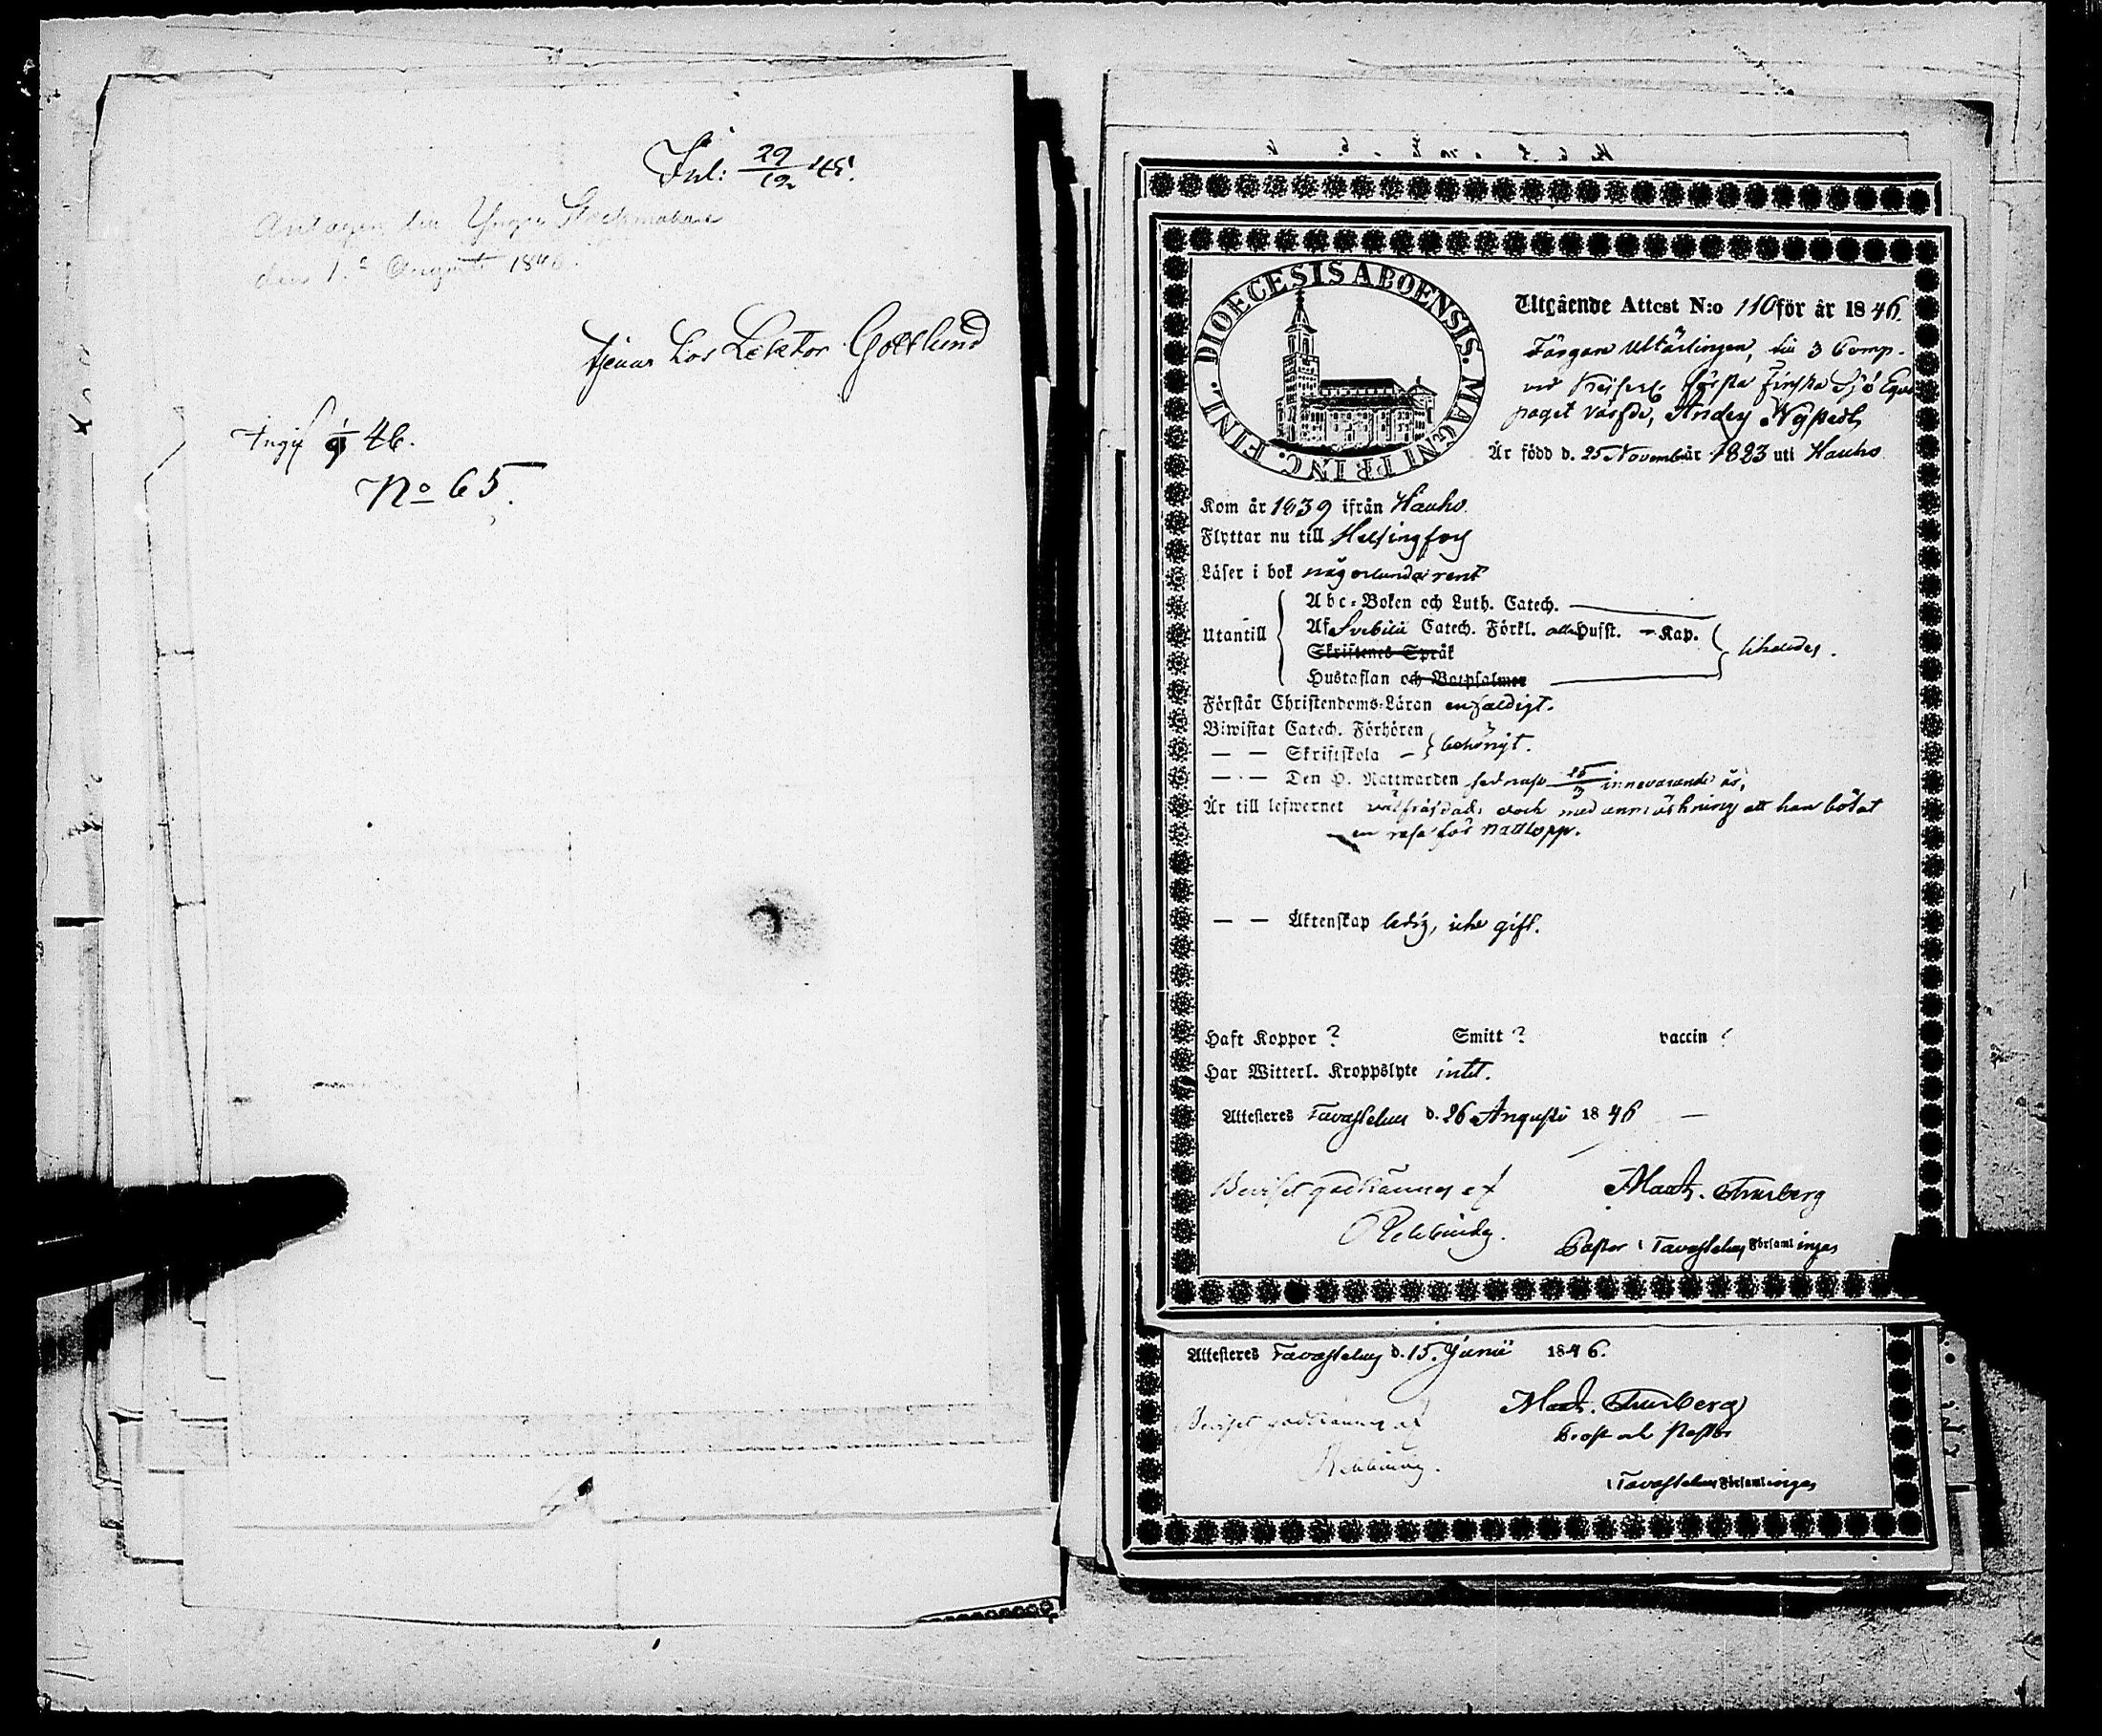 Inl: 29/12 45.
Antagen till Yngre
den 1:a Augusti 1846.
tjenar hos Lektor Gottlund
Ingif 1/9 46.
No 65.
DIOECESIS ABOENSIS. MAGNI PRINC. FINL.
Utgående Attest N:o 110 för år 1846.
Färgare Ultärlingen, till 3 Comp.
vid Keiserl. första Finska Sjö Equi
paget värfde, Anders Nysted,
Är född d. 25 Novemb. år 1823 uti Hauho
Kom år 1839 ifrån Hauho.
Flyttar nu till Helsingfors
Läser i bok någorlunda rent
Abc-Boken och Luth. Catech.
Utantill Af Svebilii Catech. Förkl. alla Hufst. - Kap. likaledes.
Skriftenes Språk
Hustaflan och Botpsalmer
Förstår Christendoms-Läran enfaldigt.
Biwistat Catech. Förhören
— — Skriftskola - behörigt.
— — Den H. Nattwarden sednast 15/3 innevarande år,
Är till lefwernet välfräjdad, dock med anmärkning att han bötat
en resa för nattlopp.
— — Äktenskap ledig, icke gift.
Haft Koppor ? Smitt ? vaccin ?
Har Witterl. Kroppslyte intet.
Attesteres Tavastehus d. 26 Augusti 1846
Beviset godkännes af Mart. Thurberg
Rehbinder.
Pastor i Tavastehus Församlingar
Attesteres Tavastehus d. 15. Junii 1846.
Mart. Thurberg
Beviset godkännes af Prost och Pastor
Rehbinder.
i Tavastehus Församlingar